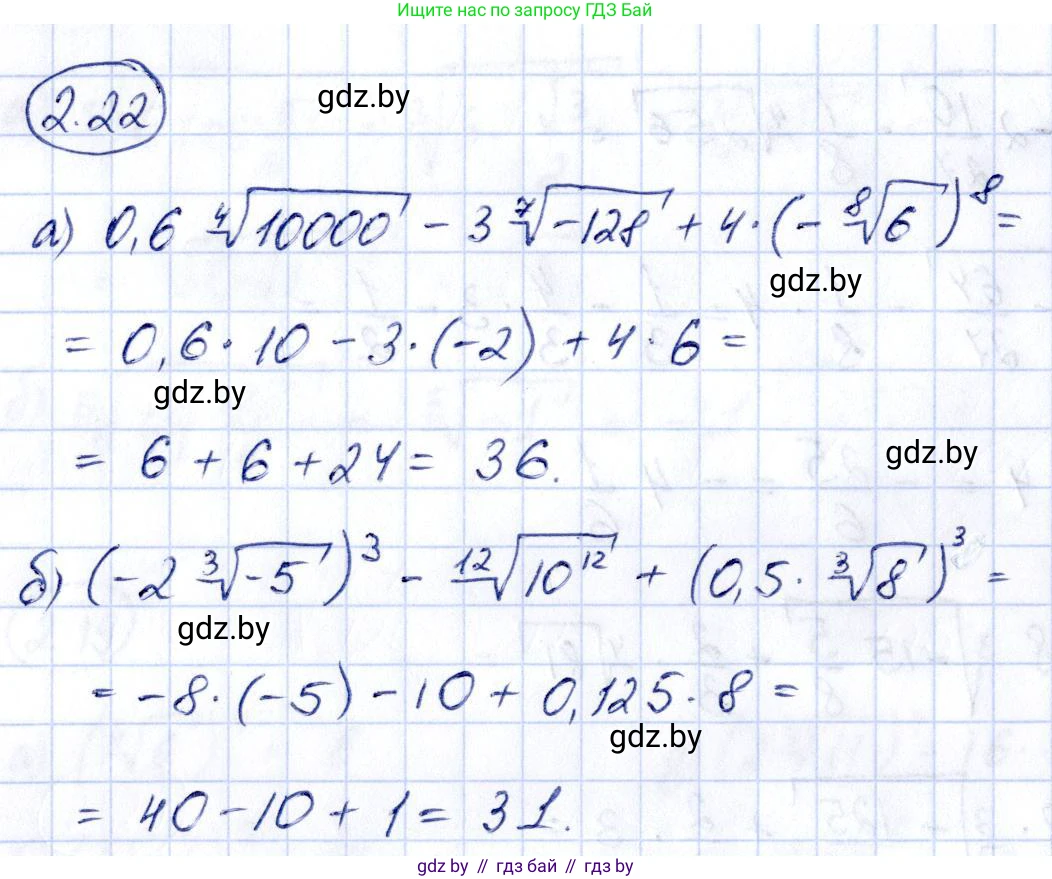 Ищите нас по запросу ГДЗ Бай
2.22
gdz.by
а) 0,6 ∜10000 − 3 ⁷√−128 + 4·(− ⁸√6)⁸ =
gdz.by
= 0,6·10 − 3·(−2) + 4·6 =
gdz.by
= 6 + 6 + 24 = 36.
gdz.by
б) (−2 ∛−5)³ − ¹²√10¹² + (0,5· ∛8)³ =
gdz.by
= −8·(−5) − 10 + 0,125·8 =
gdz.by
= 40 − 10 + 1 = 31.
gdz by // гдз бай // гдз by